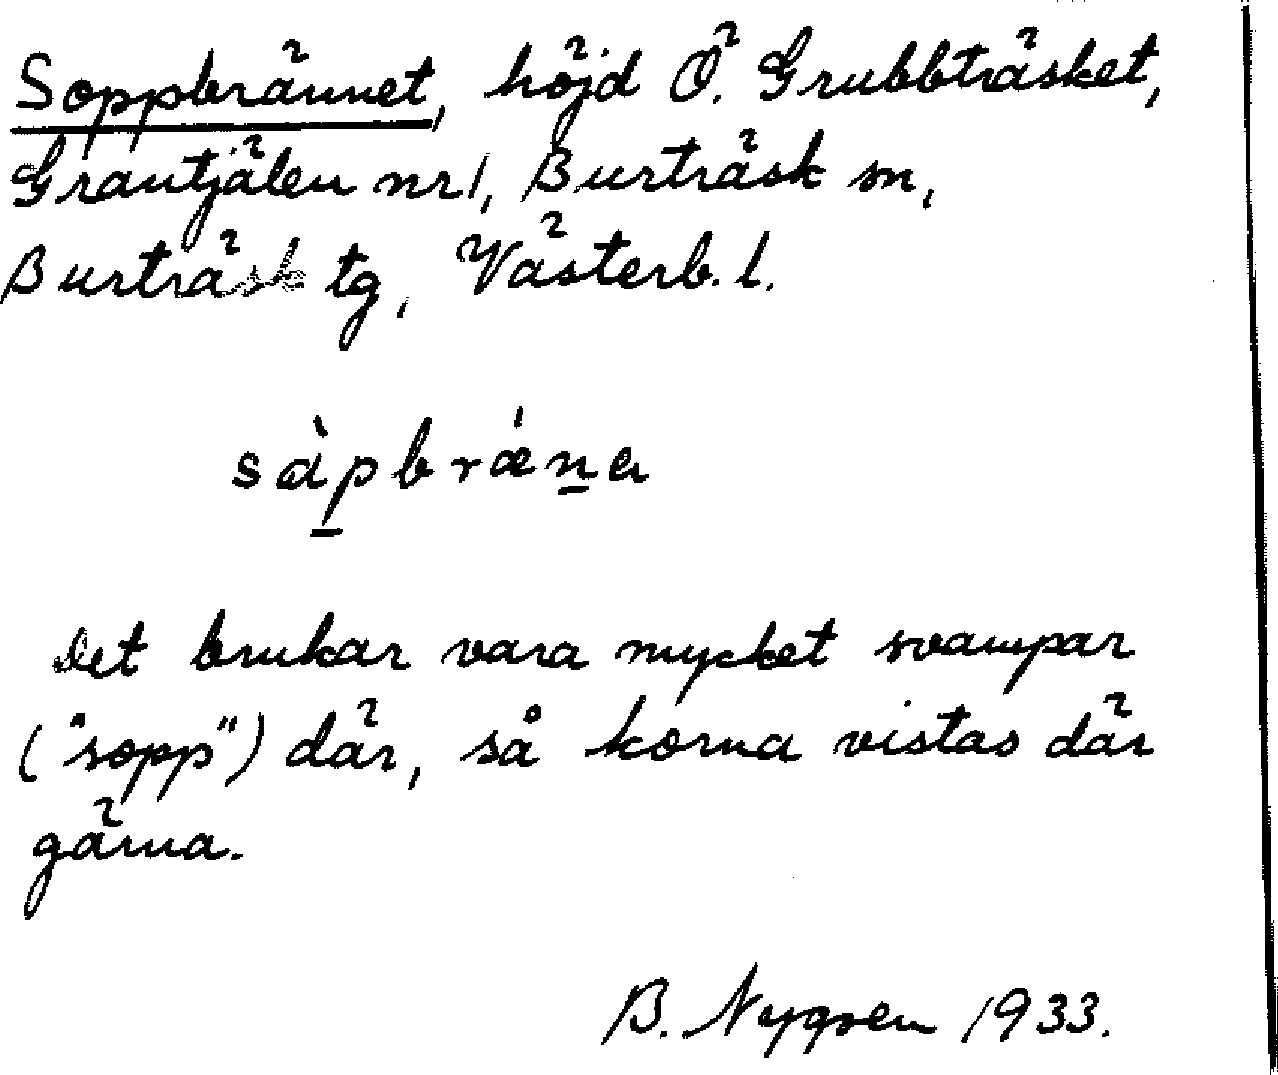 Soppbrännet, höjd Ö. Grubbträsket,
Grantjälen nr 1, Burträsk sn,
Burträsk tg, Västerb. l.
sàpbrǽna
Det brukar vara mycket svampar
("sopp") där, så korna vistas där
gärna.
B. Nygren 1933.